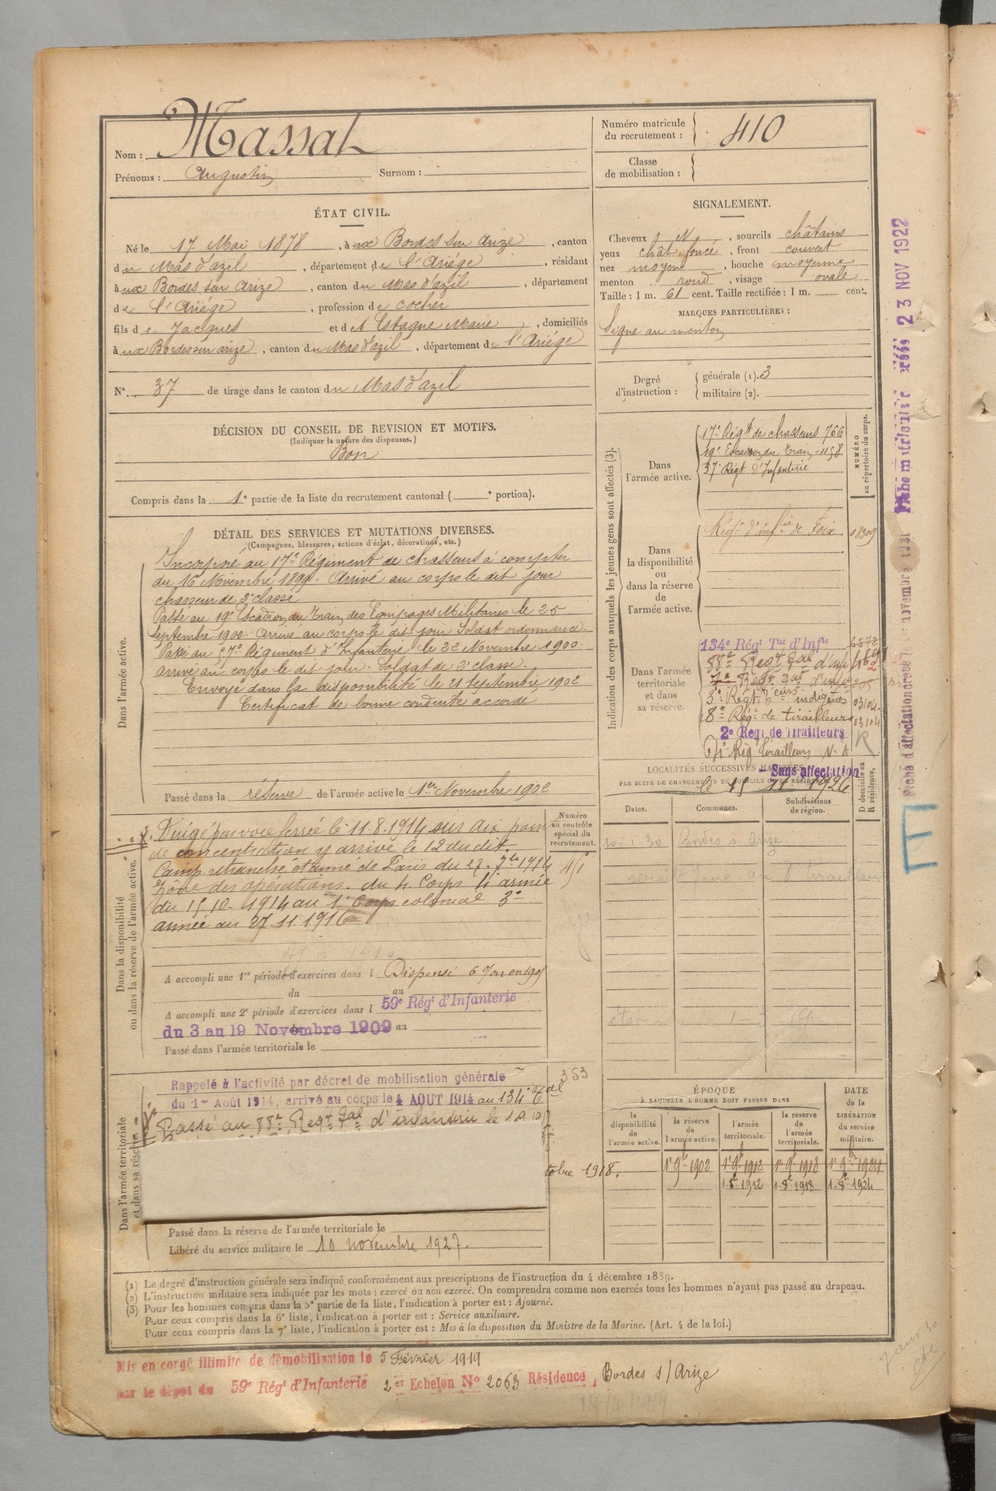 Nom : Massat
Prénoms : Augustin Surnom :
Numéro matricule du recrutement : 410
Classe de mobilisation :
ÉTAT CIVIL.
Né le 17 Mai 1878, à ux Bordes sur Arize, canton
du Mas d'azil, département de l'Ariège, résidant
à ux Bordes sur Arize, canton du Mas d'azil, département
de l'Ariège, profession de cocher
fils de Jacques et d'Estaque Marie, domiciliés
à ux Bordes sur arize, canton du Mas d'azil, département de l'Ariège
N° 37 de tirage dans le canton du Mas d'azil
SIGNALEMENT.
Cheveux N, sourcils châtains
yeux chât. foncé, front couvert
nez moyen, bouche moyenne
menton rond, visage ovale
Taille : 1 m. 61 cent. Taille rectifiée : 1 m. cent.
MARQUES PARTICULIÈRES :
Signe au menton
Degré d'instruction : générale (1). 3
militaire (2).
DÉCISION DU CONSEIL DE REVISION ET MOTIFS.
(Indiquer la nature des dispenses.)
Bon
Compris dans la 1e partie de la liste du recrutement cantonal ( e portion).
DÉTAIL DES SERVICES ET MUTATIONS DIVERSES.
(Campagnes, blessures, actions d'éclat, décorations, etc.)
Dans l'armée active.
Incorporé au 17e Régiment de chasseurs à compter
du 16 Novembre 1899. Arrivé au corps le dit jour
chasseur de 2e classe
Passé au 19e Escadron du Train des Equipages Militaires le 25
Septembre 1900. Arrivé au corps le dit jour Soldat ordonnance
Passé au 37e Régiment d'Infanterie le 22 Novembre 1900
arrivé au corps le dit jour. Soldat de 2e classe.
Envoyé dans la disponibilité le 21 Septembre 1902
Certificat de bonne conduite accordé
Passé dans la réserve de l'armée active le 1er Novembre 1902
Indication des corps auxquels les jeunes gens sont affectés (3).
NUMÉRO au répertoire du corps.
Dans l'armée active.
17e Régt de chasseurs 766
19e Escadron du Train 1158
37e Régt d'Infanterie
Dans la disponibilité ou dans la réserve de l'armée active.
Régt d'infie de Foix 01309
Dans l'armée territoriale et dans sa réserve.
134e Régt Tal d'Infie
88e Regt Tal d'inf
3e Régt Tirs indigènes
8e Régt de tirailleurs
2e Régt de Tirailleurs
Régt tirailleurs N. A
Sans affectation
le 15 11 1926
LOCALITÉS SUCCESSIVES HABITÉES
PAR SUITE DE CHANGEMENTS DE DOMICILE OU DE RÉSIDENCE.
D domicile ou R résidence.
Dates. Communes. Subdivisions de région.
Bordes s Arize
Numéro au contrôle spécial du recrutement.
Dans la disponibilité ou dans la réserve de l'armée active.
Dirigé par voie ferrée le 11.8.1914 sur dix point
de concentration y arrivé le 12 du dit.
Camp retranché et armée de Paris du 27. 7bre 1914
Zone des opérations. du 4. Corps 4e armée
du 15.10.1914 au 1er Corps colonial 3e
armée au 27.11.1916
A accompli une 1re période d'exercices dans l Dispensé
du au
A accompli une 2e période d'exercices dans l 59e Régt d'Infanterie
du 3 au 19 Novembre 1909 au
Passé dans l'armée territoriale le
Dans l'armée territoriale et dans sa réserve.
Rappelé à l'activité par décret de mobilisation générale
du 1er Août 1914, arrivé au corps le 4 AOUT 1914 au 134e Tal
353
Passé au 88e Regt Tal d'infanterie le 10
tobre 1918.
Passé dans la réserve de l'armée territoriale le
Libéré du service militaire le 10 novembre 1927.
ÉPOQUE
A LAQUELLE L'HOMME DOIT PASSER DANS
la disponibilité de l'armée active. la réserve de l'armée active. l'armée territoriale. la réserve de l'armée territoriale. DATE de la LIBÉRATION du service militaire.
1er 9bre 1902 1er 9bre 1912 1er 9bre 1918 1er 9bre 1924
1.8e 1912 1.8e 1918 1.8e 1924
(1) Le degré d'instruction générale sera indiqué conformément aux prescriptions de l'instruction du 4 décembre 1889.
(2) L'instruction militaire sera indiquée par les mots : exercé ou non exercé. On comprendra comme non exercés tous les hommes n'ayant pas passé au drapeau.
(3) Pour les hommes compris dans la 5e partie de la liste, l'indication à porter est : Ajourné.
Pour ceux compris dans la 6e liste, l'indication à porter est : Service auxiliaire.
Pour ceux compris dans la 7e liste, l'indication à porter est : Mis à la disposition du Ministre de la Marine. (Art. 4 de la loi.)
Mis en congé illimité de démobilisation le 5 Février 1919
par le dépôt du 59e Régt d'Infanterie 2e Echelon No 2063 Résidence, Bordes s/Arize
23 NOV 1922